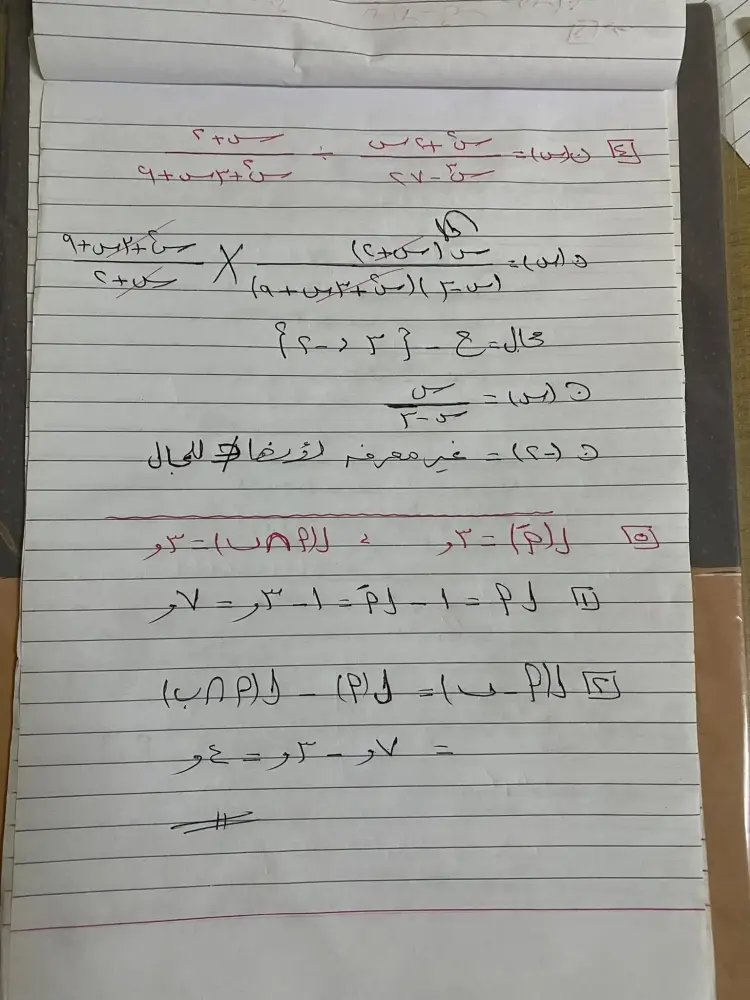 [٤] ن(س) = (س² + ٢س)/(س³ - ٢٧) ÷ (س + ٢)/(س² + ٣س + ٩)
ن(س) = س(س + ٢)/((س - ٣)(س² + ٣س + ٩)) × (س² + ٣س + ٩)/(س + ٢)
مجال = ح - {٣ ، -٢}
ن(س) = س/(س - ٣)
ن(-٢) = غير معرفه لأنها ∉ للمجال
[٥] ل(أَ) = ٣, ، ل(أ ∩ ب) = ٣,
[١] ل أ = ١ - ل أَ = ١ - ٣, = ٧,
[٢] ل(أ - ب) = ل(أ) - ل(أ ∩ ب)
= ٧, - ٣, = ٤,